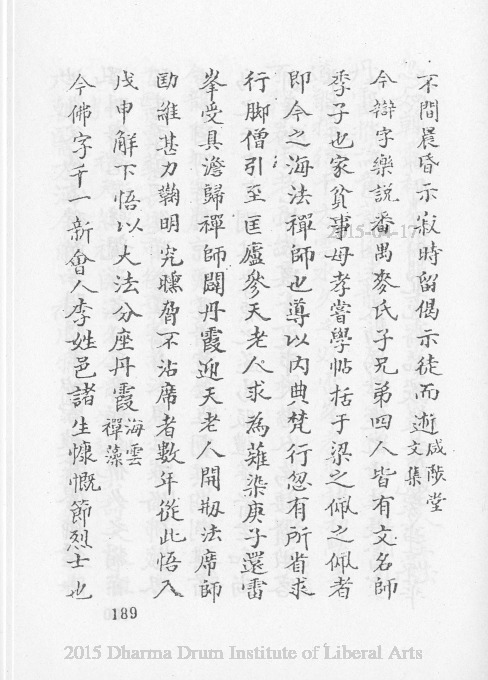 不間晨昏示寂時留偈示徒而逝咸陟堂文集
今辯字樂説番禺麥氏子兄弟四人皆有文名師
季子也家貧事母孝嘗學帖括于梁之佩之佩者
即今之海法禪師也導以内典梵行忽有所省求
行脚僧引至匡廬參天老人求為薙染庚子還雷
峯受具澹歸禪師闢丹霞迎天老人開刱法席師
助維甚力鞠明究曛脅不沾席者數年從此悟入
戊申解下悟以大法分座丹霞海雲禪藻
今佛字千一新會人李姓邑諸生慷慨節烈士也
189
2015-04-17
2015 Dharma Drum Institute of Liberal Arts